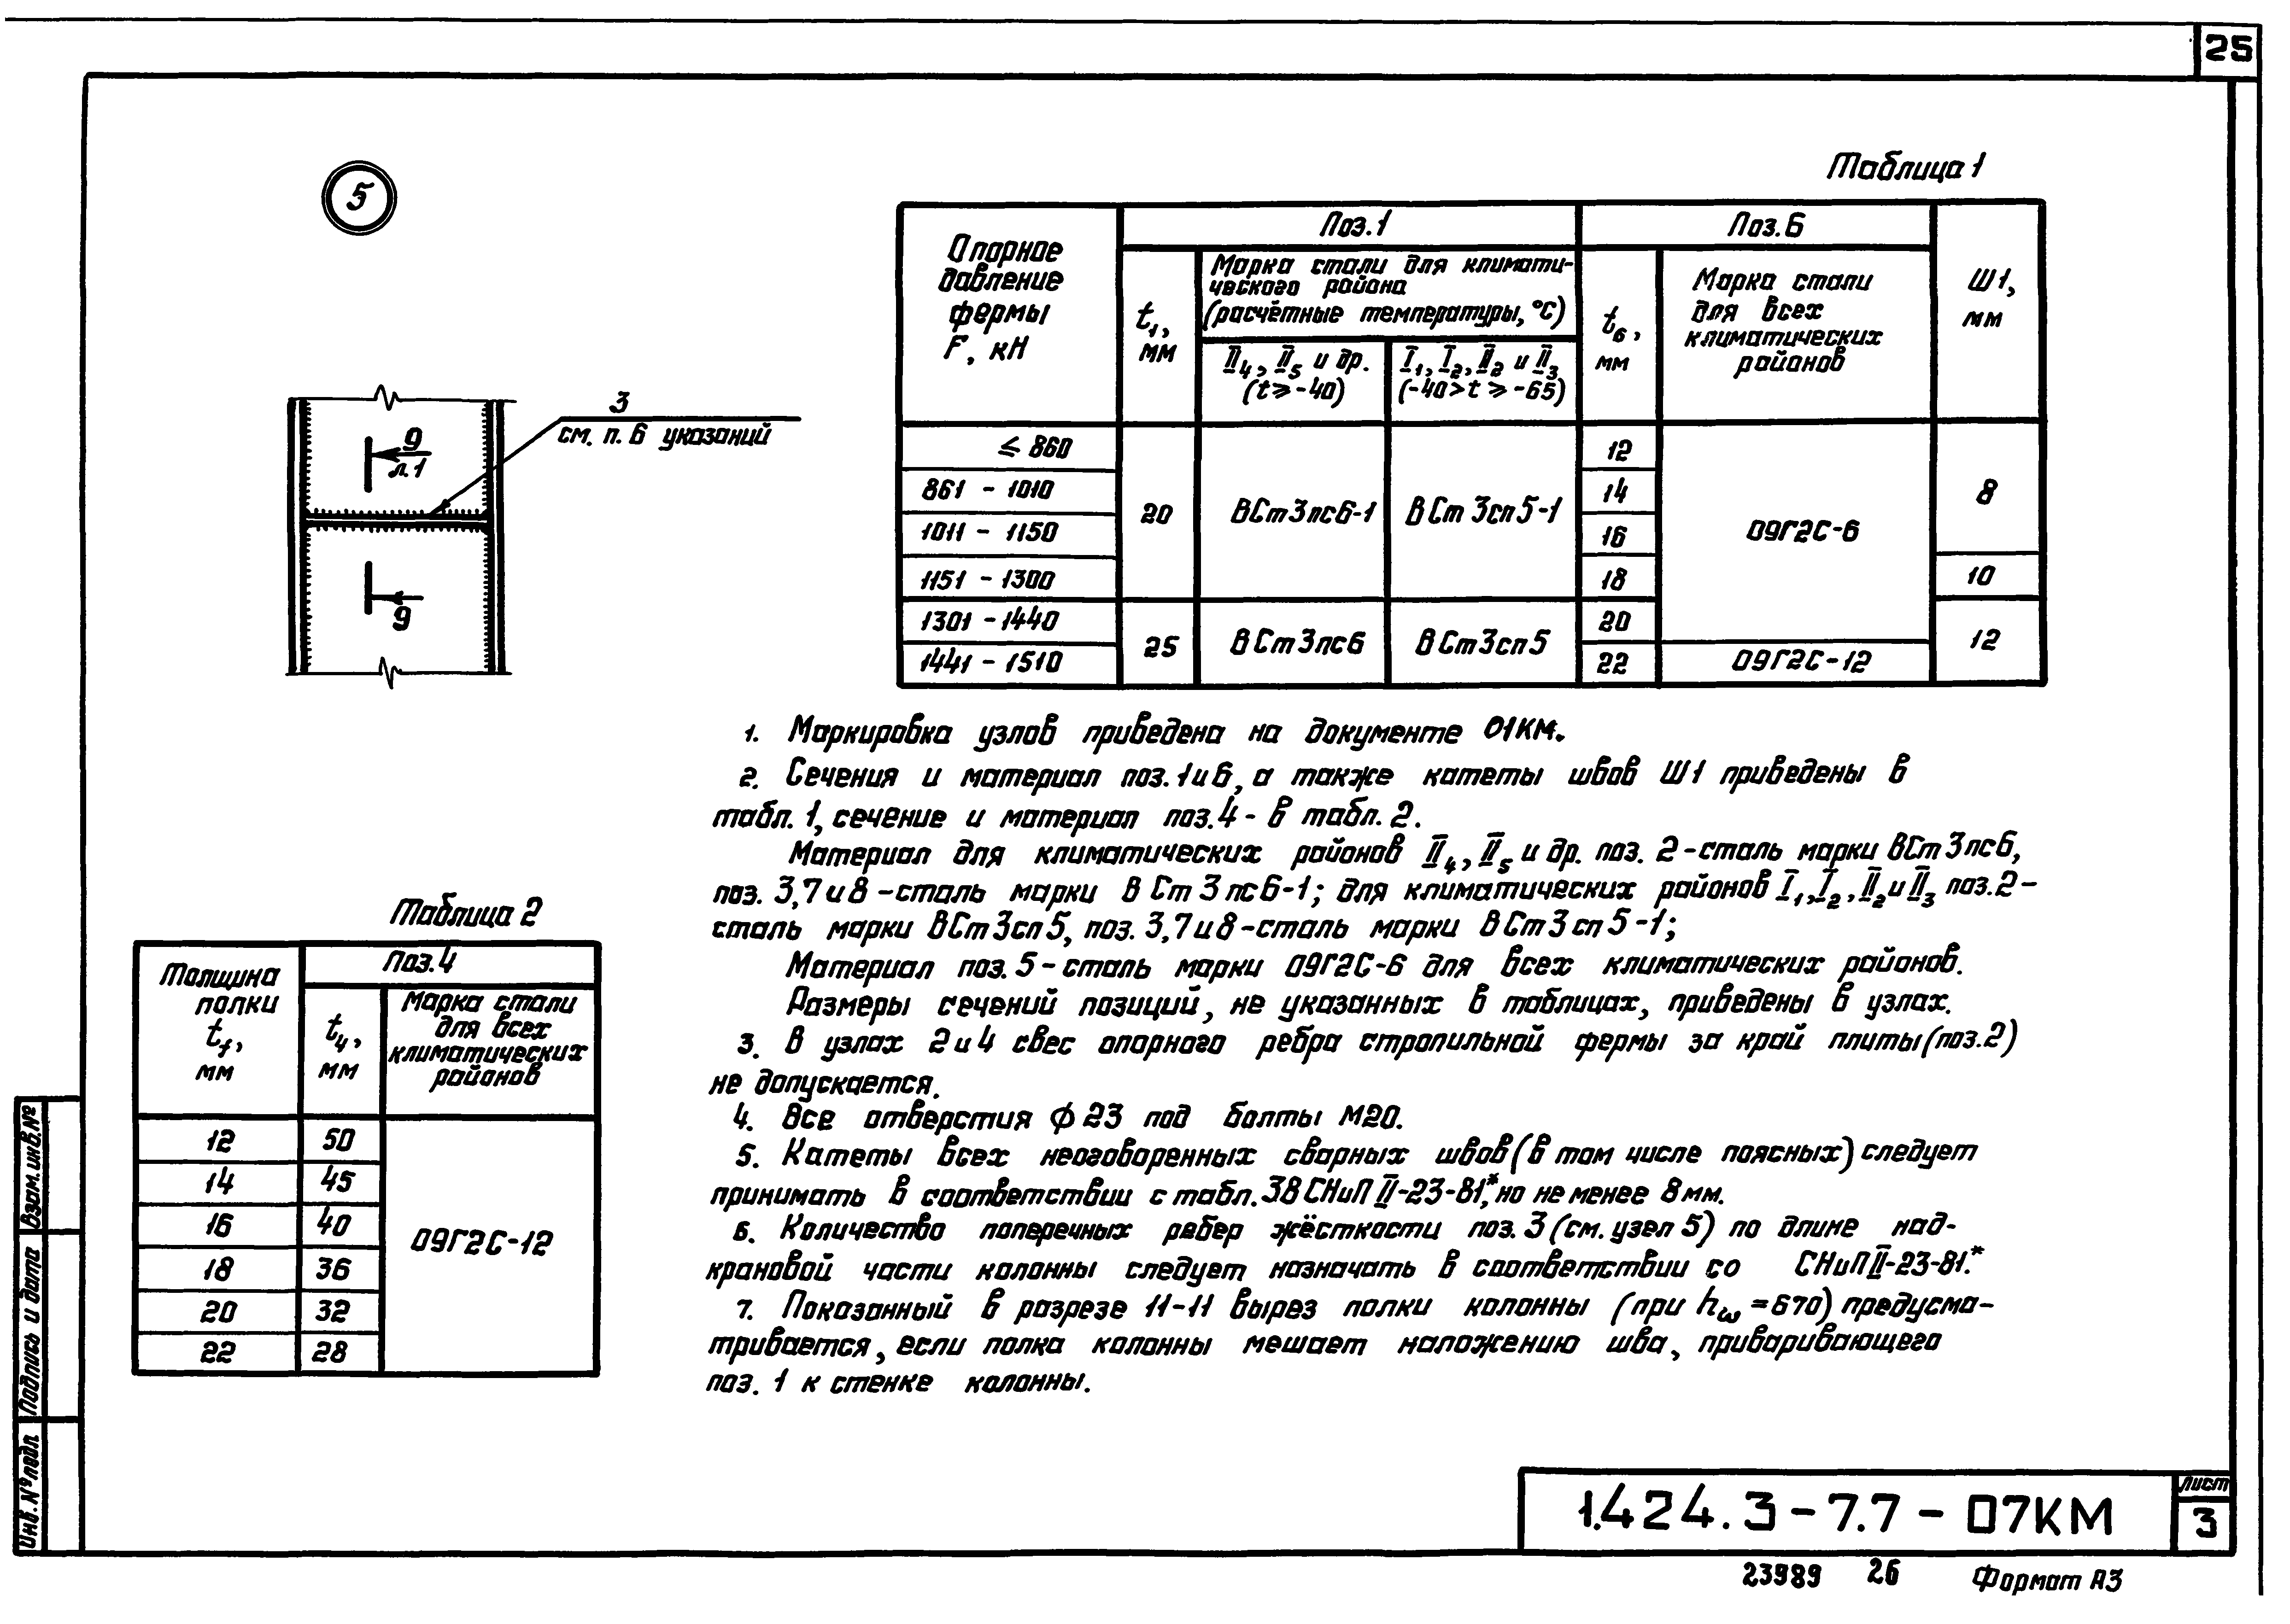 25
5
3
см. п. 6 указаний
9
л. 1
9
Таблица 1
Опорное давление фермы F, кН
Поз. 1
Поз. 6
Ш1, мм
t₁, мм
Марка стали для климати-
ческого района
(расчётные температуры, °С)
t₆, мм
Марка стали для всех климатических районов
II₄, II₅ и др. (t ⩾ -40)
I₁, I₂, II₂ и II₃ (-40 > t ⩾ -65)
≤ 860
12
861 - 1010
14
1011 - 1150
16
1151 - 1300
18
20
ВСт3пс6-1
ВСт3сп5-1
09Г2С-6
8
10
1301 - 1440
20
1441 - 1510
22
25
ВСт3пс6
ВСт3сп5
09Г2С-12
12
1. Маркировка узлов приведена на документе 01КМ.
2. Сечения и материал поз. 1 и 6, а также катеты швов Ш1 приведены в
табл. 1, сечение и материал поз. 4 - в табл. 2.
Материал для климатических районов II₄, II₅ и др. поз. 2 - сталь марки ВСт3пс6,
поз. 3,7 и 8 - сталь марки ВСт3пс6-1; для климатических районов I₁, I₂, II₂ и II₃ поз. 2 -
сталь марки ВСт3сп5, поз. 3,7 и 8 - сталь марки ВСт3сп5-1;
Материал поз. 5 - сталь марки 09Г2С-6 для всех климатических районов.
Размеры сечений позиций, не указанных в таблицах, приведены в узлах.
3. В узлах 2 и 4 свес опорного ребра стропильной фермы за край плиты (поз. 2)
не допускается.
4. Все отверстия ф 23 под болты М20.
5. Катеты всех неоговоренных сварных швов (в том числе поясных) следует
принимать в соответствии с табл. 38 СНиП II-23-81*, но не менее 8 мм.
6. Количество поперечных ребер жёсткости поз. 3 (см. узел 5) по длине над-
крановой части колонны следует назначать в соответствии со СНиП II-23-81*.
7. Показанный в разрезе 11-11 вырез полки колонны (при hω = 670) предусма-
тривается, если полка колонны мешает наложению шва, приваривающего
поз. 1 к стенке колонны.
Таблица 2
Толщина полки t_f, мм
Поз. 4
t₄, мм
Марка стали для всех климатических районов
12 50
14 45
16 40
18 36
20 32
22 28
09Г2С-12
Взам. инв. №
Подпись и дата
Инв. № подл.
1.424.3-7.7-07КМ
Лист
3
23989 26 Формат А3